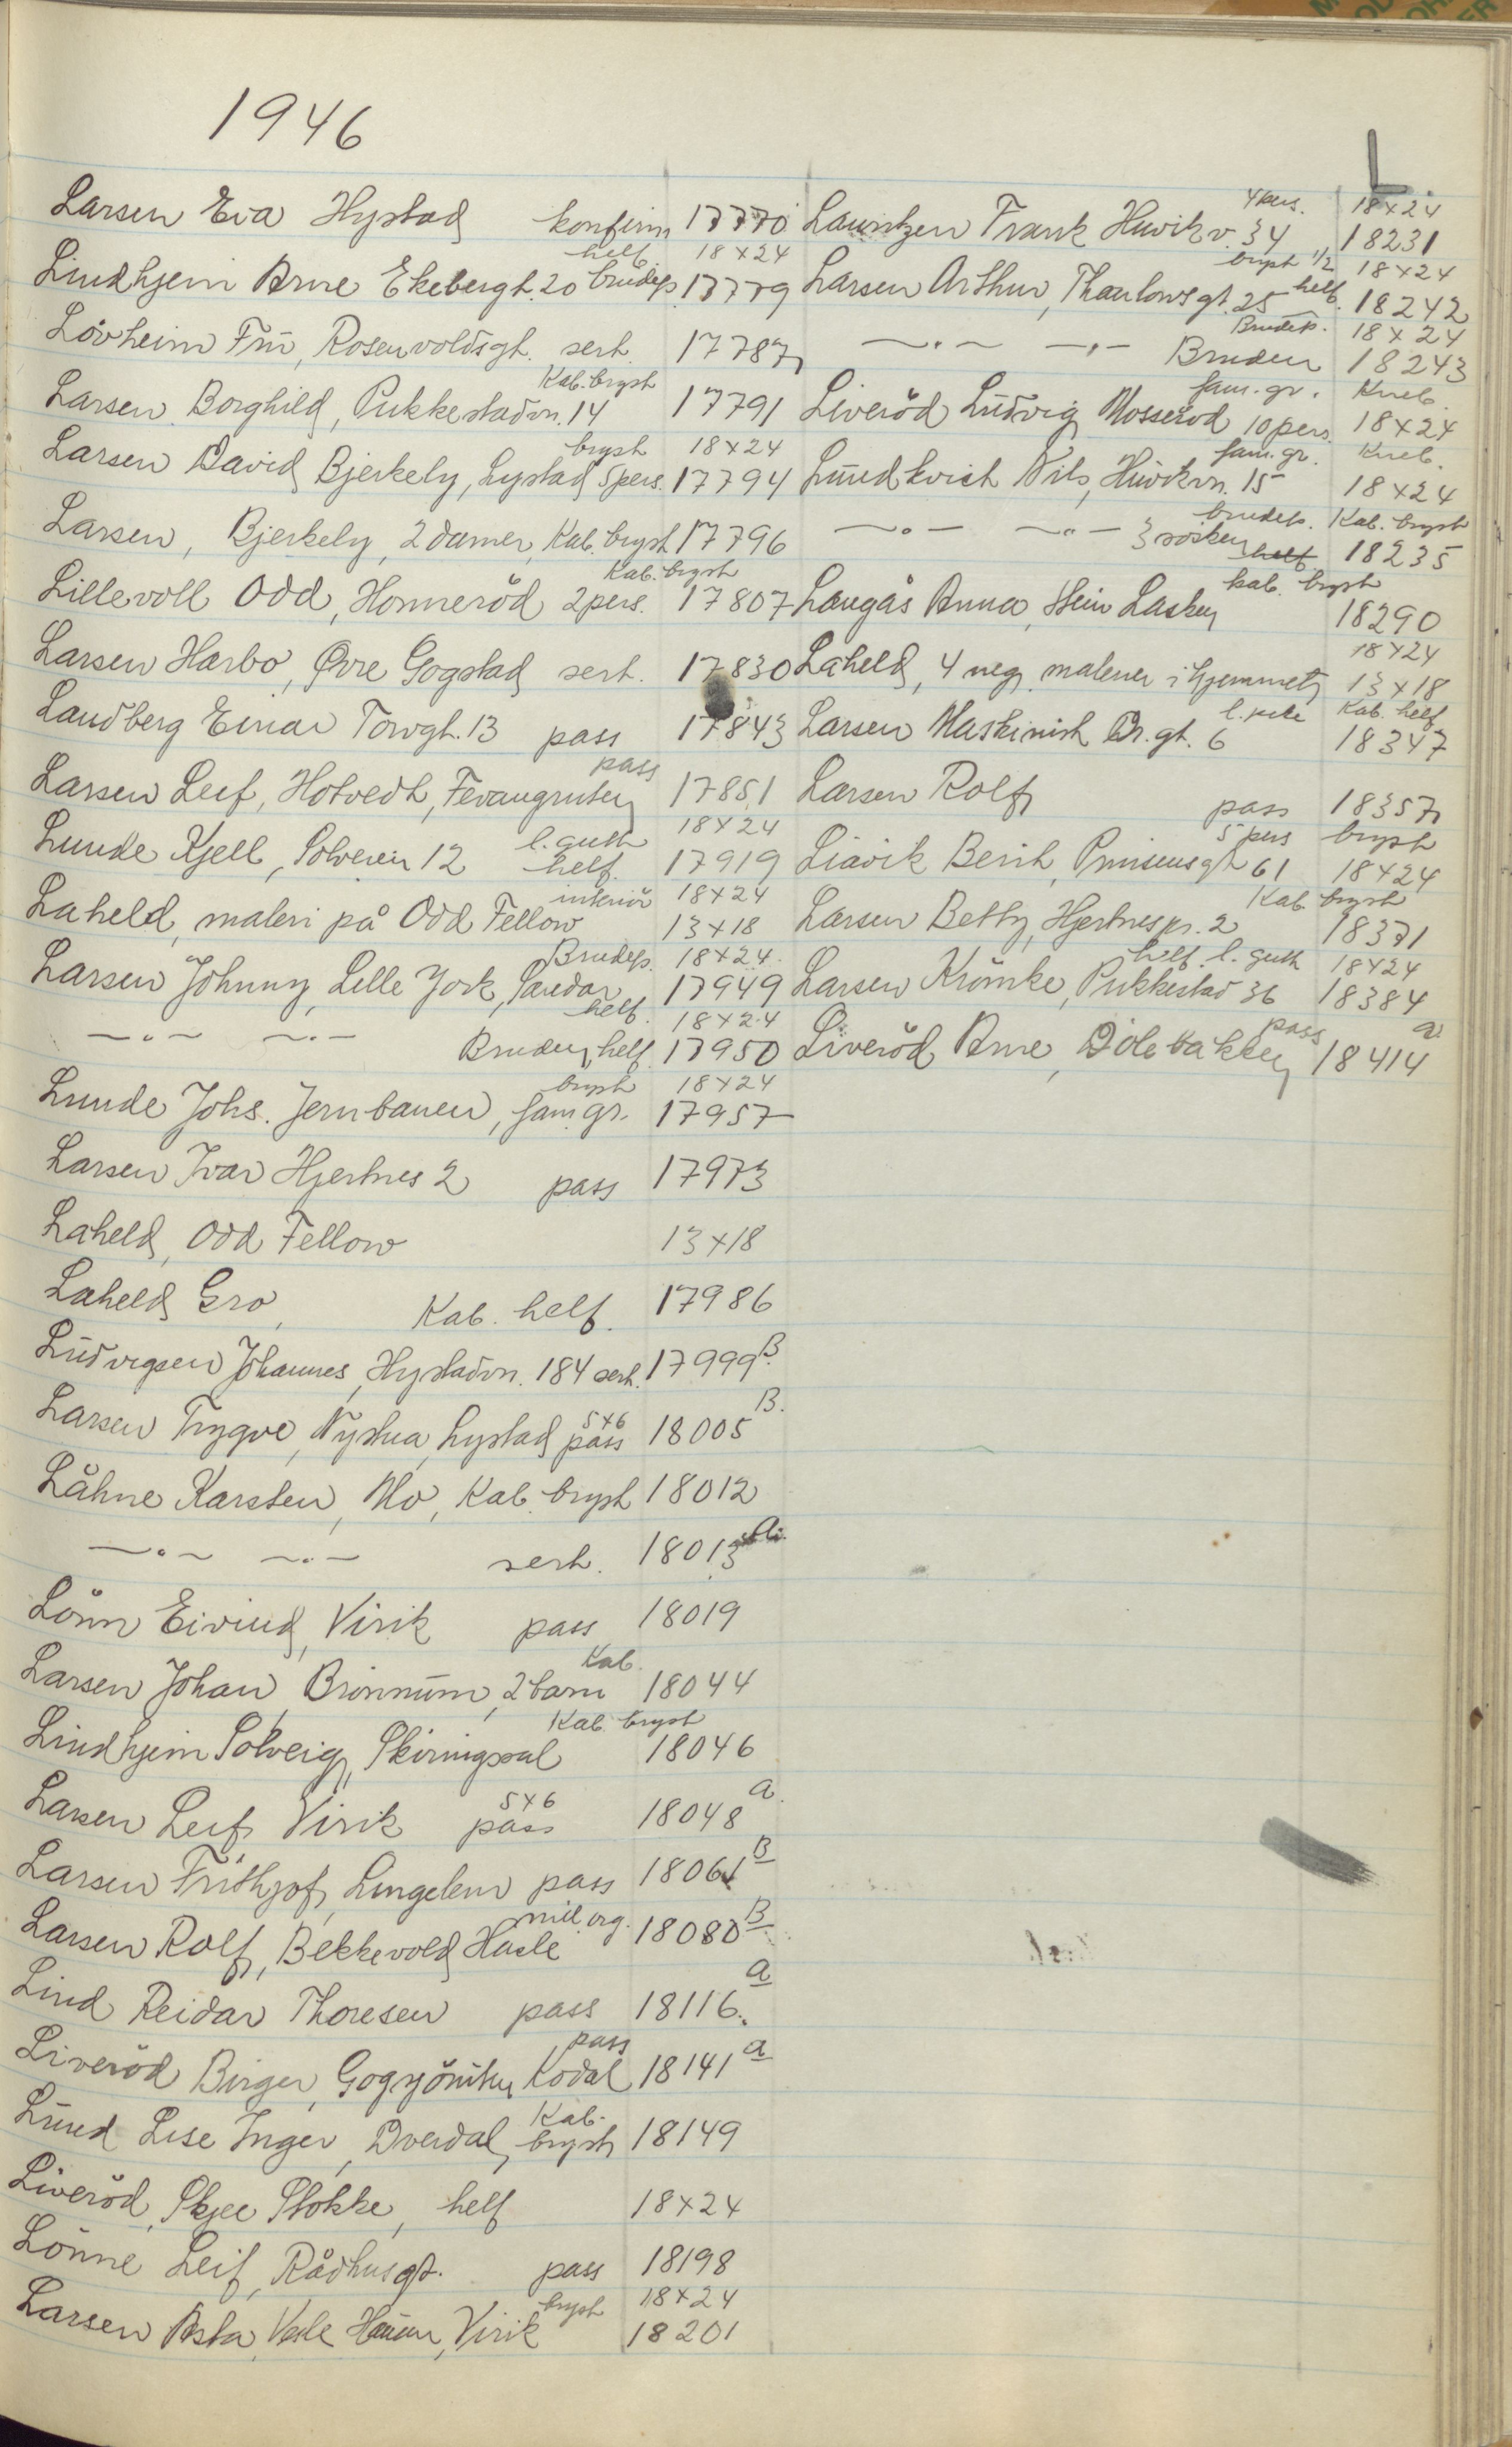 1946
L
Larsen Eva Hystad konfirm 17770
Lindhjem Arne Ekebergt. 20 helf. brudep 18x24 17779
Lövheim Frü, Rosenvoldsgt. sert. 17787
Larsen Borghild, Pukkestadvn. 14 Kab. bryst 17791
Larsen David Bjerkely, Lystad 5 pers. bryst 18x24 17794
Larsen, Bjerkely, 2 damer, Kab. bryst 17796
Lillevoll Odd, Honneröd 2 pers. Kab. bryst 17807
Larsen Harbo, Øvre Gogstad sert. 17830
Landberg Einar Torvgt. 13 pass 17843
Larsen Leif, Hotvedt, pass 17851
Lunde Kjell, Solveien 12 l. guth helf. 18x24 17919
Laheld, maleri på Odd Fellow interiör 18x24 13x18
Larsen Johnny, Lille York, Sandar Brudep. 18x24 17949
—·— —·— Bruden, helf. helf. 18x24 17950
Lunde Johs. Jernbanen, fam. gr. bryst 18x24 17957
Larsen Ivar Hjertnes 2 pass 17973
Laheld, Odd Fellow 13x18
Laheld Gro, Kab. helf. 17986
Lüdvigsen Johannes, Hystadvn. 184 sert. 17999 B.
Larsen Trygve, Nystua, Lystad 5x6 pass 18005 B.
Låhne Karsten, Mo, Kab. bryst 18012
—·— —·— sert. 18013 a.
Lönn Eivind, Virik pass 18019
Larsen Johan, Brönnum, 2 barn Kab. 18044
Lindhjem Solveig, Skiringssal Kab. bryst 18046
Larsen Leif, Virik 5x6 pass 18048 a.
Larsen Frithjof, Lingelem pass 18061 B
Larsen Rolf, Bekkevold, Hasle mil. org. 18080 B
Lind Reidar Thoresen pass 18116. a
Liveröd Birger, Kodal pass 18141 a
Lünd Lise Inger, Dverdal, Kab. bryst 18149
Liveröd, Skjee Stokke, helf 18x24
Lönne Leif, Rådhusgt. pass 18198
Larsen Asta, Vesle Haüan, Virik bryst 18x24 18201
Lauritzen Frank Huvikv. 34 4 pers. 18x24 „ 18231
Larsen Arthur, Thaulowsgt. 25 bryst 1/2 helf. 18x24 18242
—·— —·— Bruden Brudep. 18x24 18243
Liveröd Lüdvig Mosseröd 10 pers. fam. gr. Kneb. 18x24
Lündkvist Nils, Hüvikvn. 15 fam. gr. Kneb. 18x24
—·— —·— 3 sösken brudep. helf. Kab. bryst 18235
Langås Anna, Hein Lasken kab. bryst 18290
Laheld, 4 neg. malerier i hjemmet, 18x24 13x18
Larsen Maskinist Br. gt. 6 l. pike Kab. helf. 18347
Larsen Rolf, pass 18357
Liavik Berit, Prinsensgt 61 5 pers bryst 18x24
Larsen Betty, Hjertnespr. 2 Kab. bryst 18371
Larsen Krömke, Pukkestad 36 helf. l. guth 18x24 18384
Liveröd Arne, Dölebakken pass 18414 a.